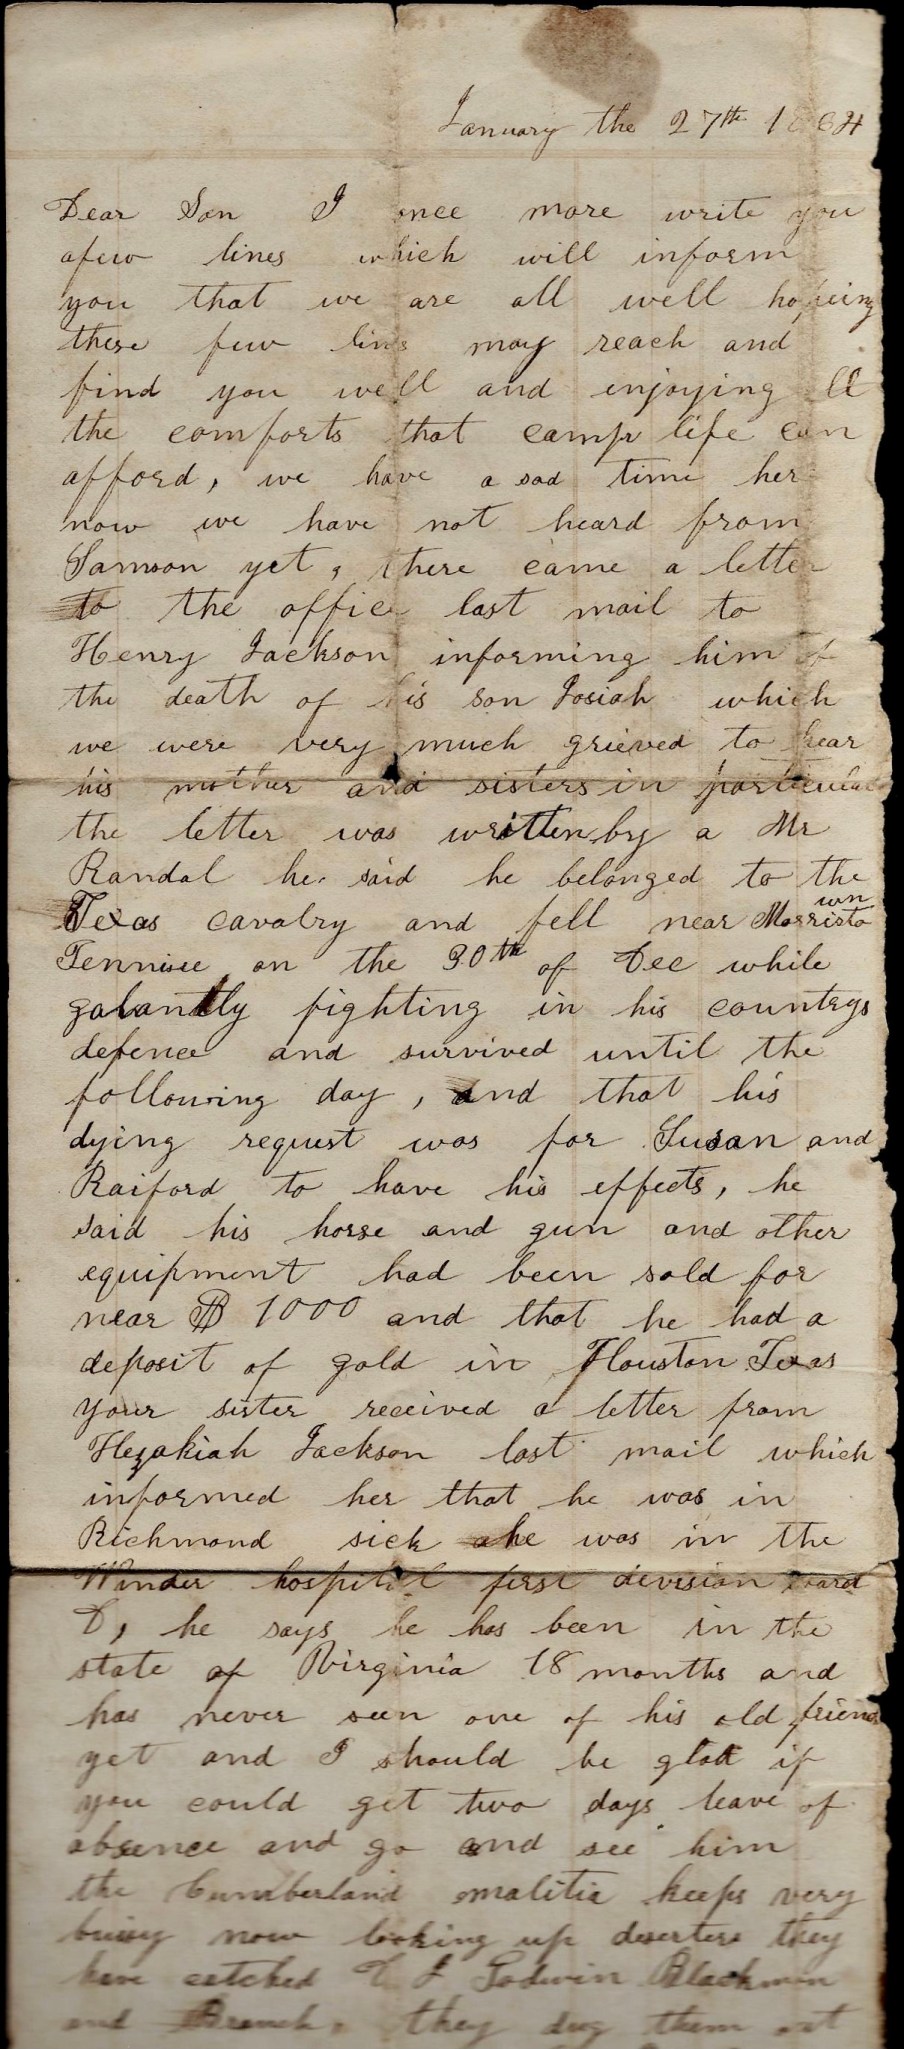 January the 27th 1864
Dear Son I once more write you
afew lines which will inform
you that we are all well hopeing
these few lines may reach and
find you well and enjoying ll
the comforts that camp life can
afford, we have a sad time her
now we have not heard from
Samson yet, there came a letter
to the office last mail to
Henry Jackson informing him of
the death of his son Josiah which
we were very much grieved to hear
his mother and sisters in particular
the letter was written by a Mr
Randal he said he belonged to the
Texas cavalry and fell near Morristown
Tennisee on the 30th of Dec while
galantly fighting in his countrys
defence and survived until the
following day, and that his
dying request was for Susan and
Raiford to have his effects, he
said his horse and gun and other
equipment had been sold for
near $ 1000 and that he had a
deposit of gold in Houston Texas
your sister received a letter from
Hezakiah Jackson last mail which
informed her that he was in
Richmond sick he was in the
Winder hospital first devision ward
D, he says he has been in the
state of Virginia 18 months and
has never seen one of his old friend
yet and I should be glad if
you could get two days leave of
absence and go and see him
the Cumberland malitia keeps very
buisy now looking up deserters they
have catched Godwin Blackman
and Branch, they dug them out